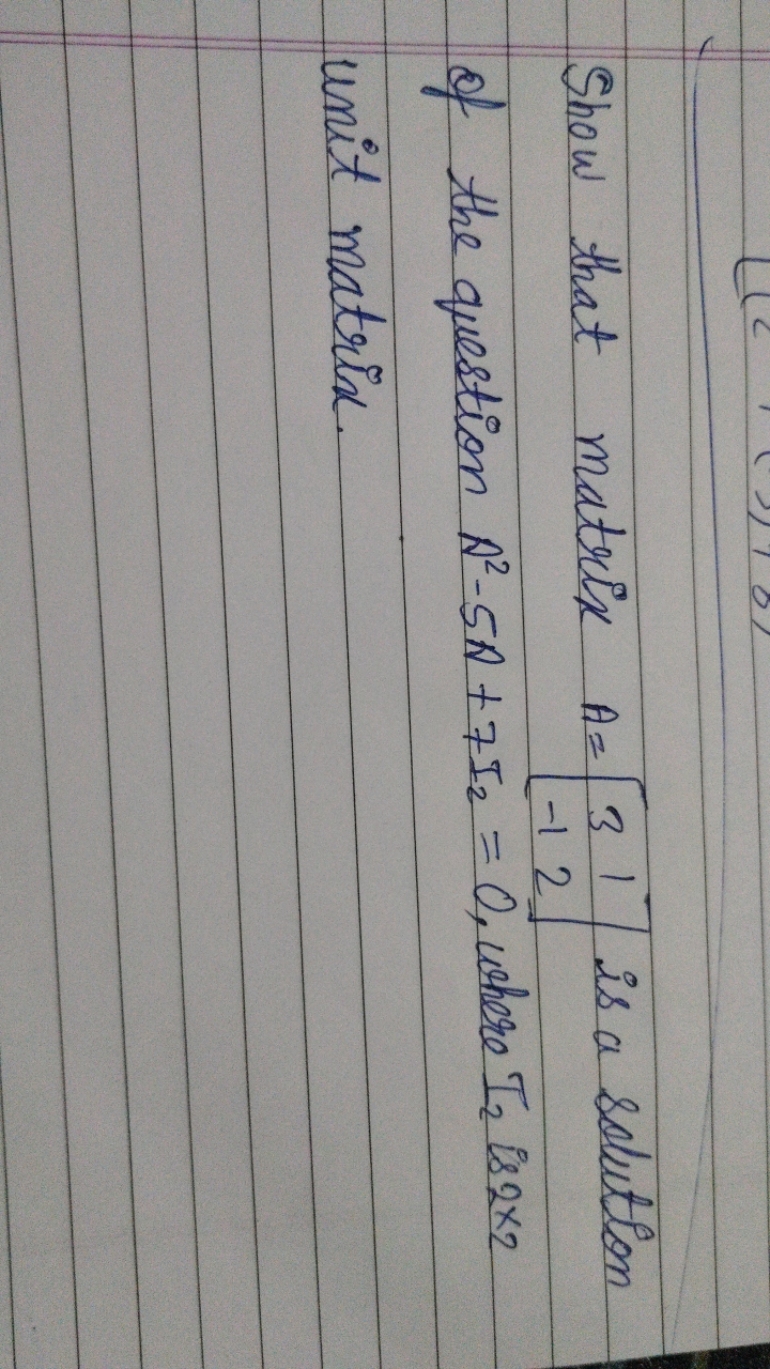 Show that matrix A = [3 1] is a solution
[-1 2]
of the question A² - 5A + 7I₂ = 0, where I₂ is 2×2
unit matrix.